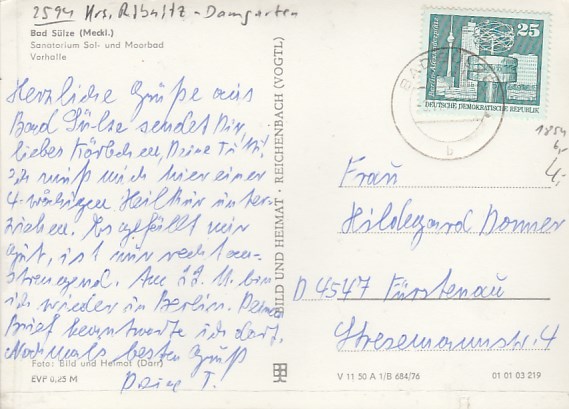 2594 Krs. Ribnitz-Damgarten
Bad Sülze (Meckl.)
Sanatorium Sol- und Moorbad
Vorhalle
Herzliche Grüße aus
Bad Sülze sendet Dir,
liebes Körbchen, Deine
Ich muß mich hier einer
4-wöchigen Heilkur unter-
ziehen. Es gefällt mir
gut, ist nur recht an-
strengend. Am 29. 11. bin
ich wieder in Berlin. Deinen
Brief beantworte ich dort.
Nochmals besten Gruß
Deine T.
Foto: Bild und Heimat (Darr)
EVP 0,25 M
BILD UND HEIMAT · REICHENBACH (VOGTL)
25
DEUTSCHE DEMOKRATISCHE REPUBLIK
BAD
b
1854
6,-
4,-
Frau
Hildegard Donner
D 4547 Fürstenau
Stresemannstr. 4
V 11 50 A 1/B 684/76
01 01 03 219